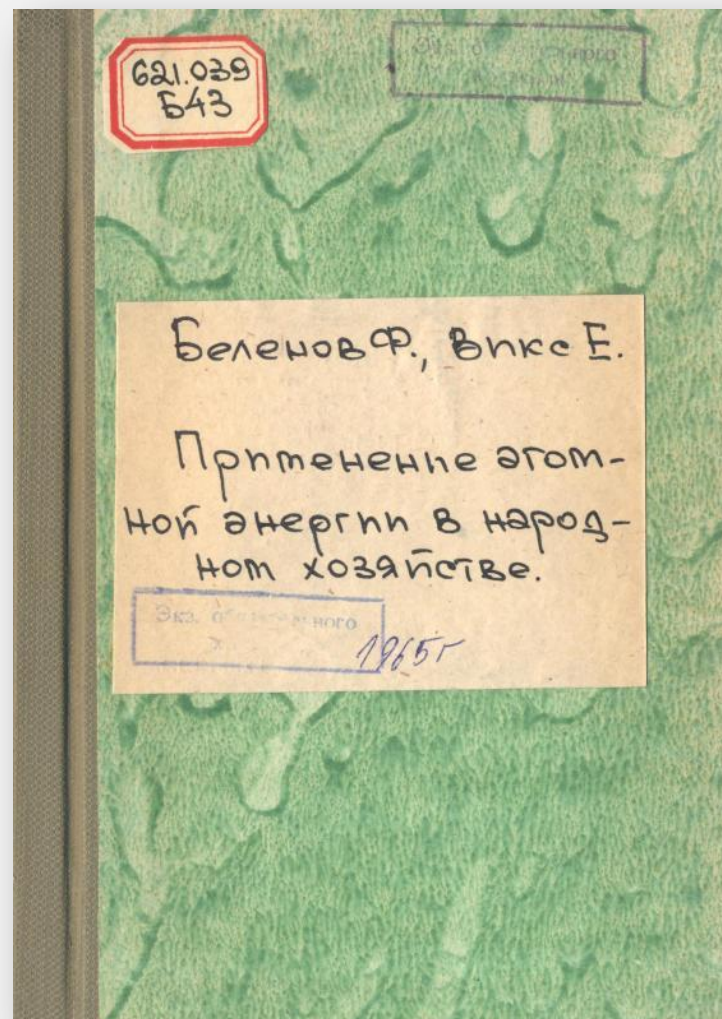 621.039
Б43
Экз.
Беленов Ф., Викс Е.
Применение атом-
ной энергии в народ-
ном хозяйстве.
Экз.
1965г